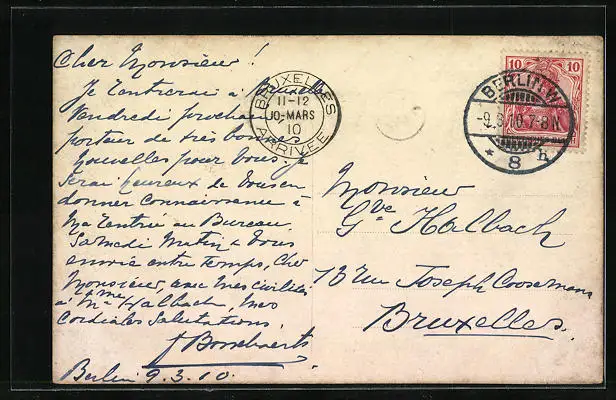 Cher Monsieur !
Je rentrerai à Bruxelles
Vendredi prochain
porteur de très bonnes
Nouvelles pour Vous. Je
serai heureux de Vous en
donner connaissance à
Ma rentrée au Bureau
Samedi Matin & Vous
envoie entre temps, Cher
Monsieur, avec mes civilités
à Mme Halbach, mes
Cordiales Salutations,
Berlin 9.3.10.
BRUXELLES
11-12
10-MARS
10
ARRIVÉE
10 10
BERLIN.W.
7-8N
* 8 h
Monsieur
Gve Halbach
13 rue Joseph Coosemans
Bruxelles.